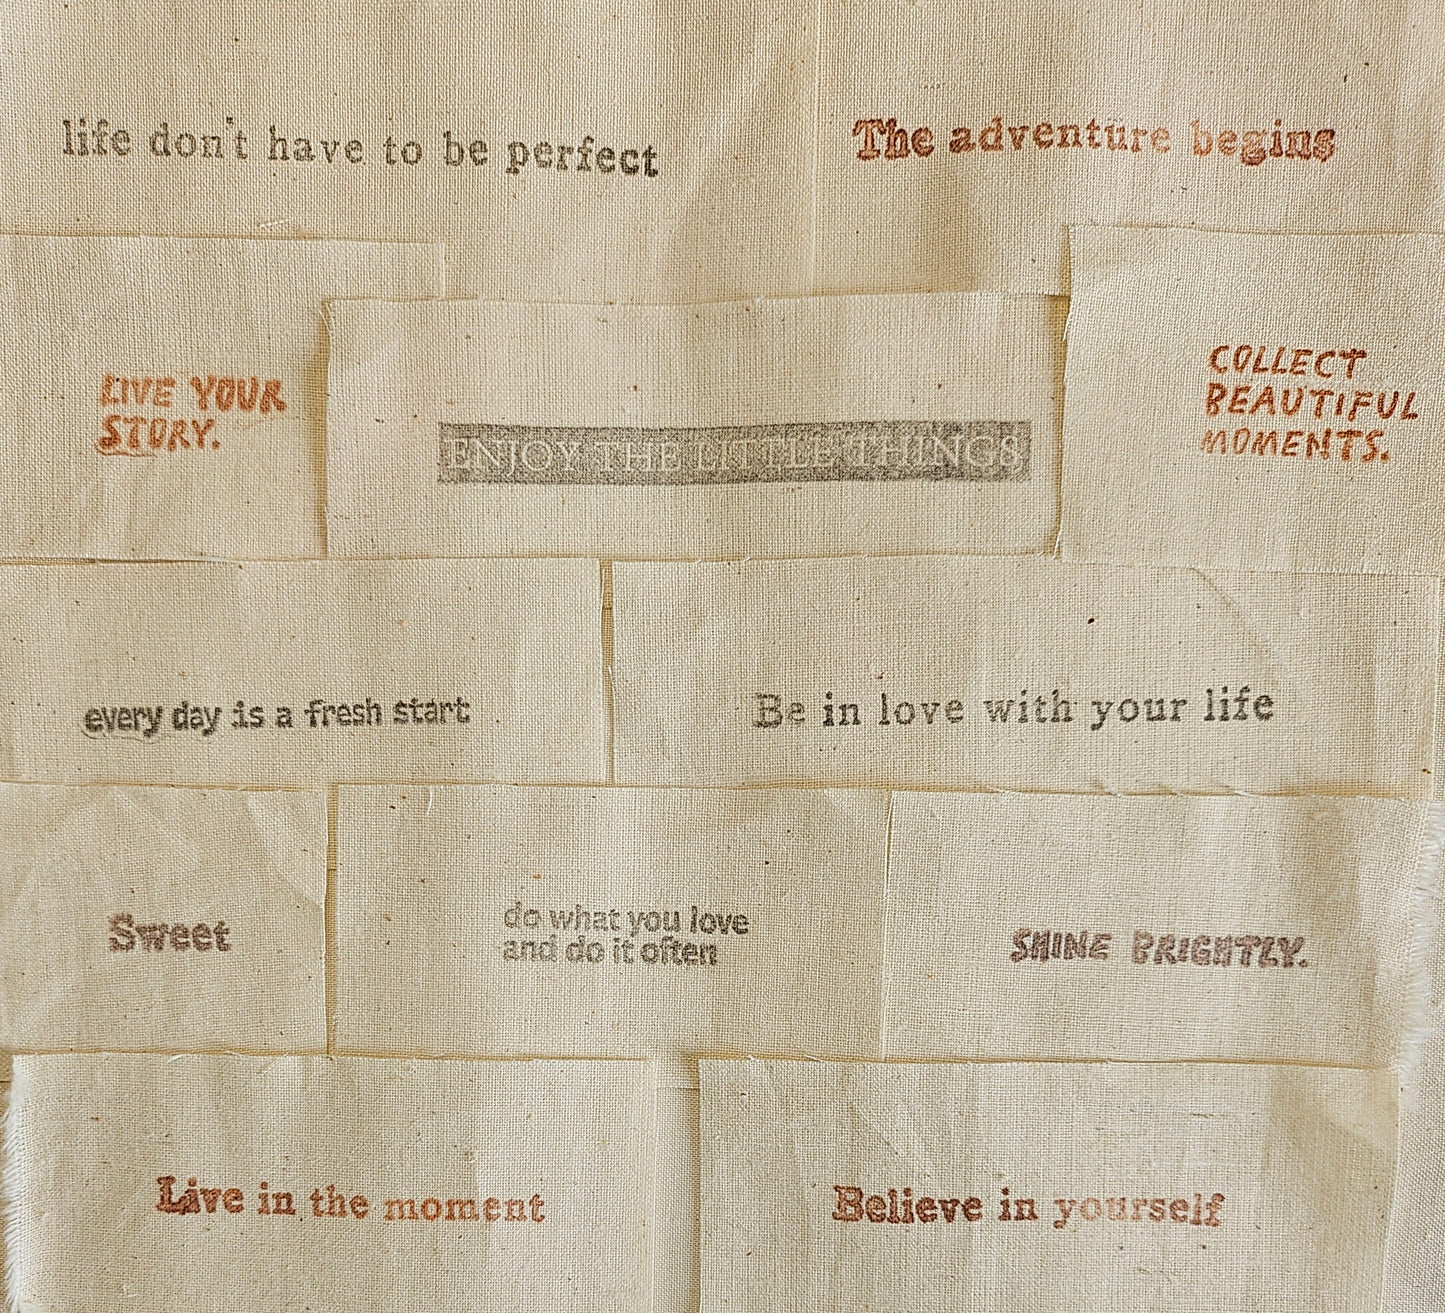 life don't have to be perfect
The adventure begins
LIVE YOUR
STORY.
ENJOY THE LITTLE THINGS
COLLECT
BEAUTIFUL
MOMENTS.
every day is a fresh start
Be in love with your life
Sweet
do what you love
and do it often
SHINE BRIGHTLY.
Live in the moment
Believe in yourself